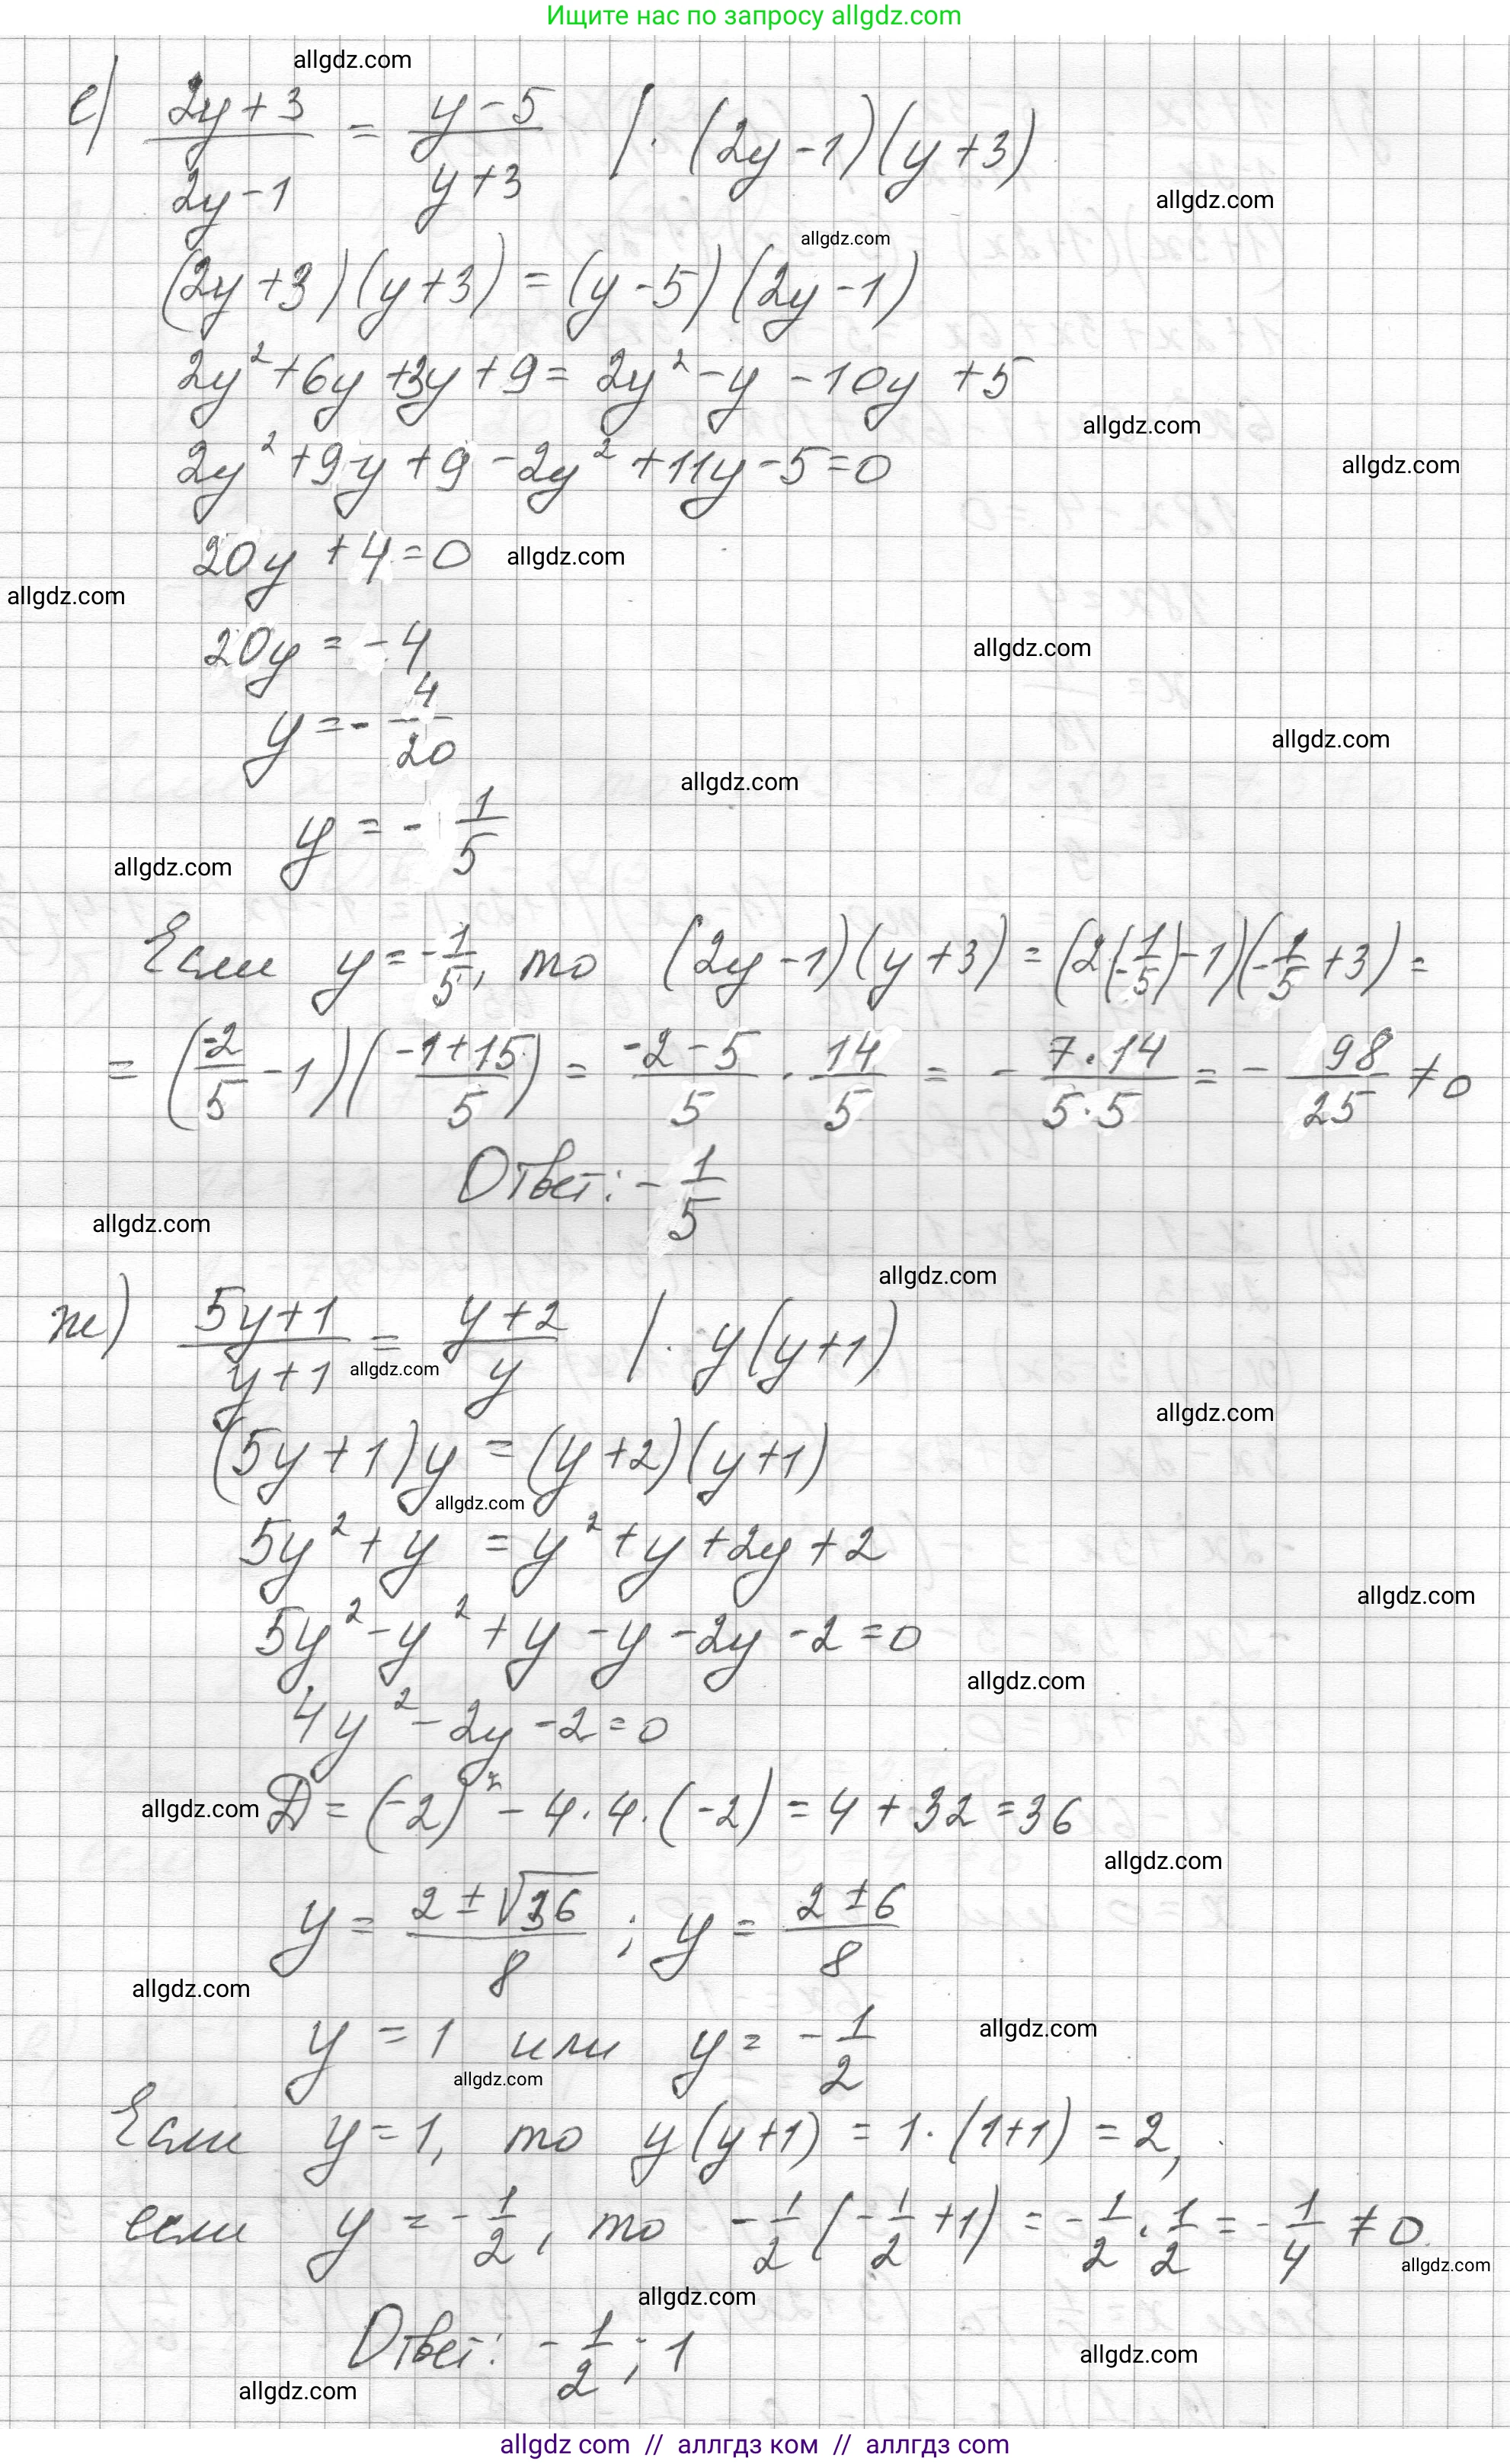 Ищите нас по запросу allgdz.com
allgdz.com
е) \frac{2y+3}{2y-1} = \frac{y-5}{y+3} /·(2y-1)(y+3)
allgdz.com
allgdz.com
(2y+3)(y+3) = (y-5)(2y-1)
2y²+6y+3y+9 = 2y²-y-10y+5
allgdz.com
2y²+9y+9-2y²+11y-5=0
allgdz.com
20y+4=0
allgdz.com
allgdz.com
20y = -4
allgdz.com
y = -\frac{4}{20}
allgdz.com
allgdz.com
y = -\frac{1}{5}
allgdz.com
Если y = -\frac{1}{5}, то (2y-1)(y+3) = (2(-\frac{1}{5})-1)(-\frac{1}{5}+3) =
= (\frac{-2}{5}-1)(\frac{-1+15}{5}) = \frac{-2-5}{5} · \frac{14}{5} = -\frac{7·14}{5·5} = -\frac{98}{25} ≠ 0
Ответ: -\frac{1}{5}
allgdz.com
allgdz.com
ж) \frac{5y+1}{y+1} = \frac{y+2}{y} /· y(y+1)
allgdz.com
allgdz.com
(5y+1)y = (y+2)(y+1)
allgdz.com
5y²+y = y²+y+2y+2
allgdz.com
5y²-y²+y-y-2y-2=0
allgdz.com
4y²-2y-2=0
allgdz.com
D = (-2)²-4·4·(-2) = 4+32 = 36
allgdz.com
y = \frac{2±√36}{8} ; y = \frac{2±6}{8}
allgdz.com
allgdz.com
y = 1 или y = -\frac{1}{2}
allgdz.com
Если y=1, то y(y+1) = 1·(1+1) = 2,
если y = -\frac{1}{2}, то -\frac{1}{2}(-\frac{1}{2}+1) = -\frac{1}{2}·\frac{1}{2} = -\frac{1}{4} ≠ 0
allgdz.com
allgdz.com
Ответ: -\frac{1}{2}; 1
allgdz.com
allgdz.com
allgdz com // аллгдз ком // аллгдз com